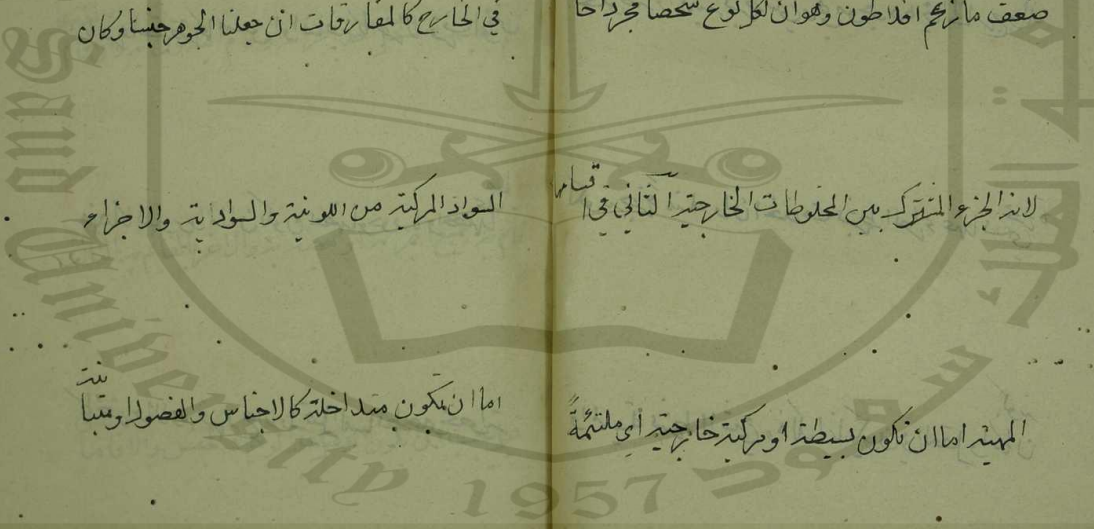 ضعف ما زعم افلاطون وهو ان لكل نوع شخصا مجردا خا
لانه الجزء المشترك بين المخلوطات الخارجية الثاني في ا قسام
المهية اما ان تكون بسيطة او مركبة خارجية اي ملتئمة
في الخارج كالمفارقات ان جعلنا الجوهر جنسا وكان
السواد المركبة من اللونية والسوادية والاجزاء
اما ان تكون متداخلة كالاجناس والفصول او متباينة
1957